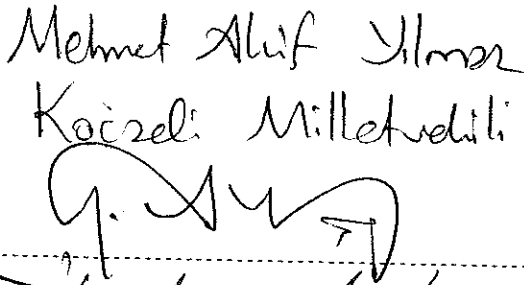 Mehmet Akif Yılmaz
Kocaeli Milletvekili